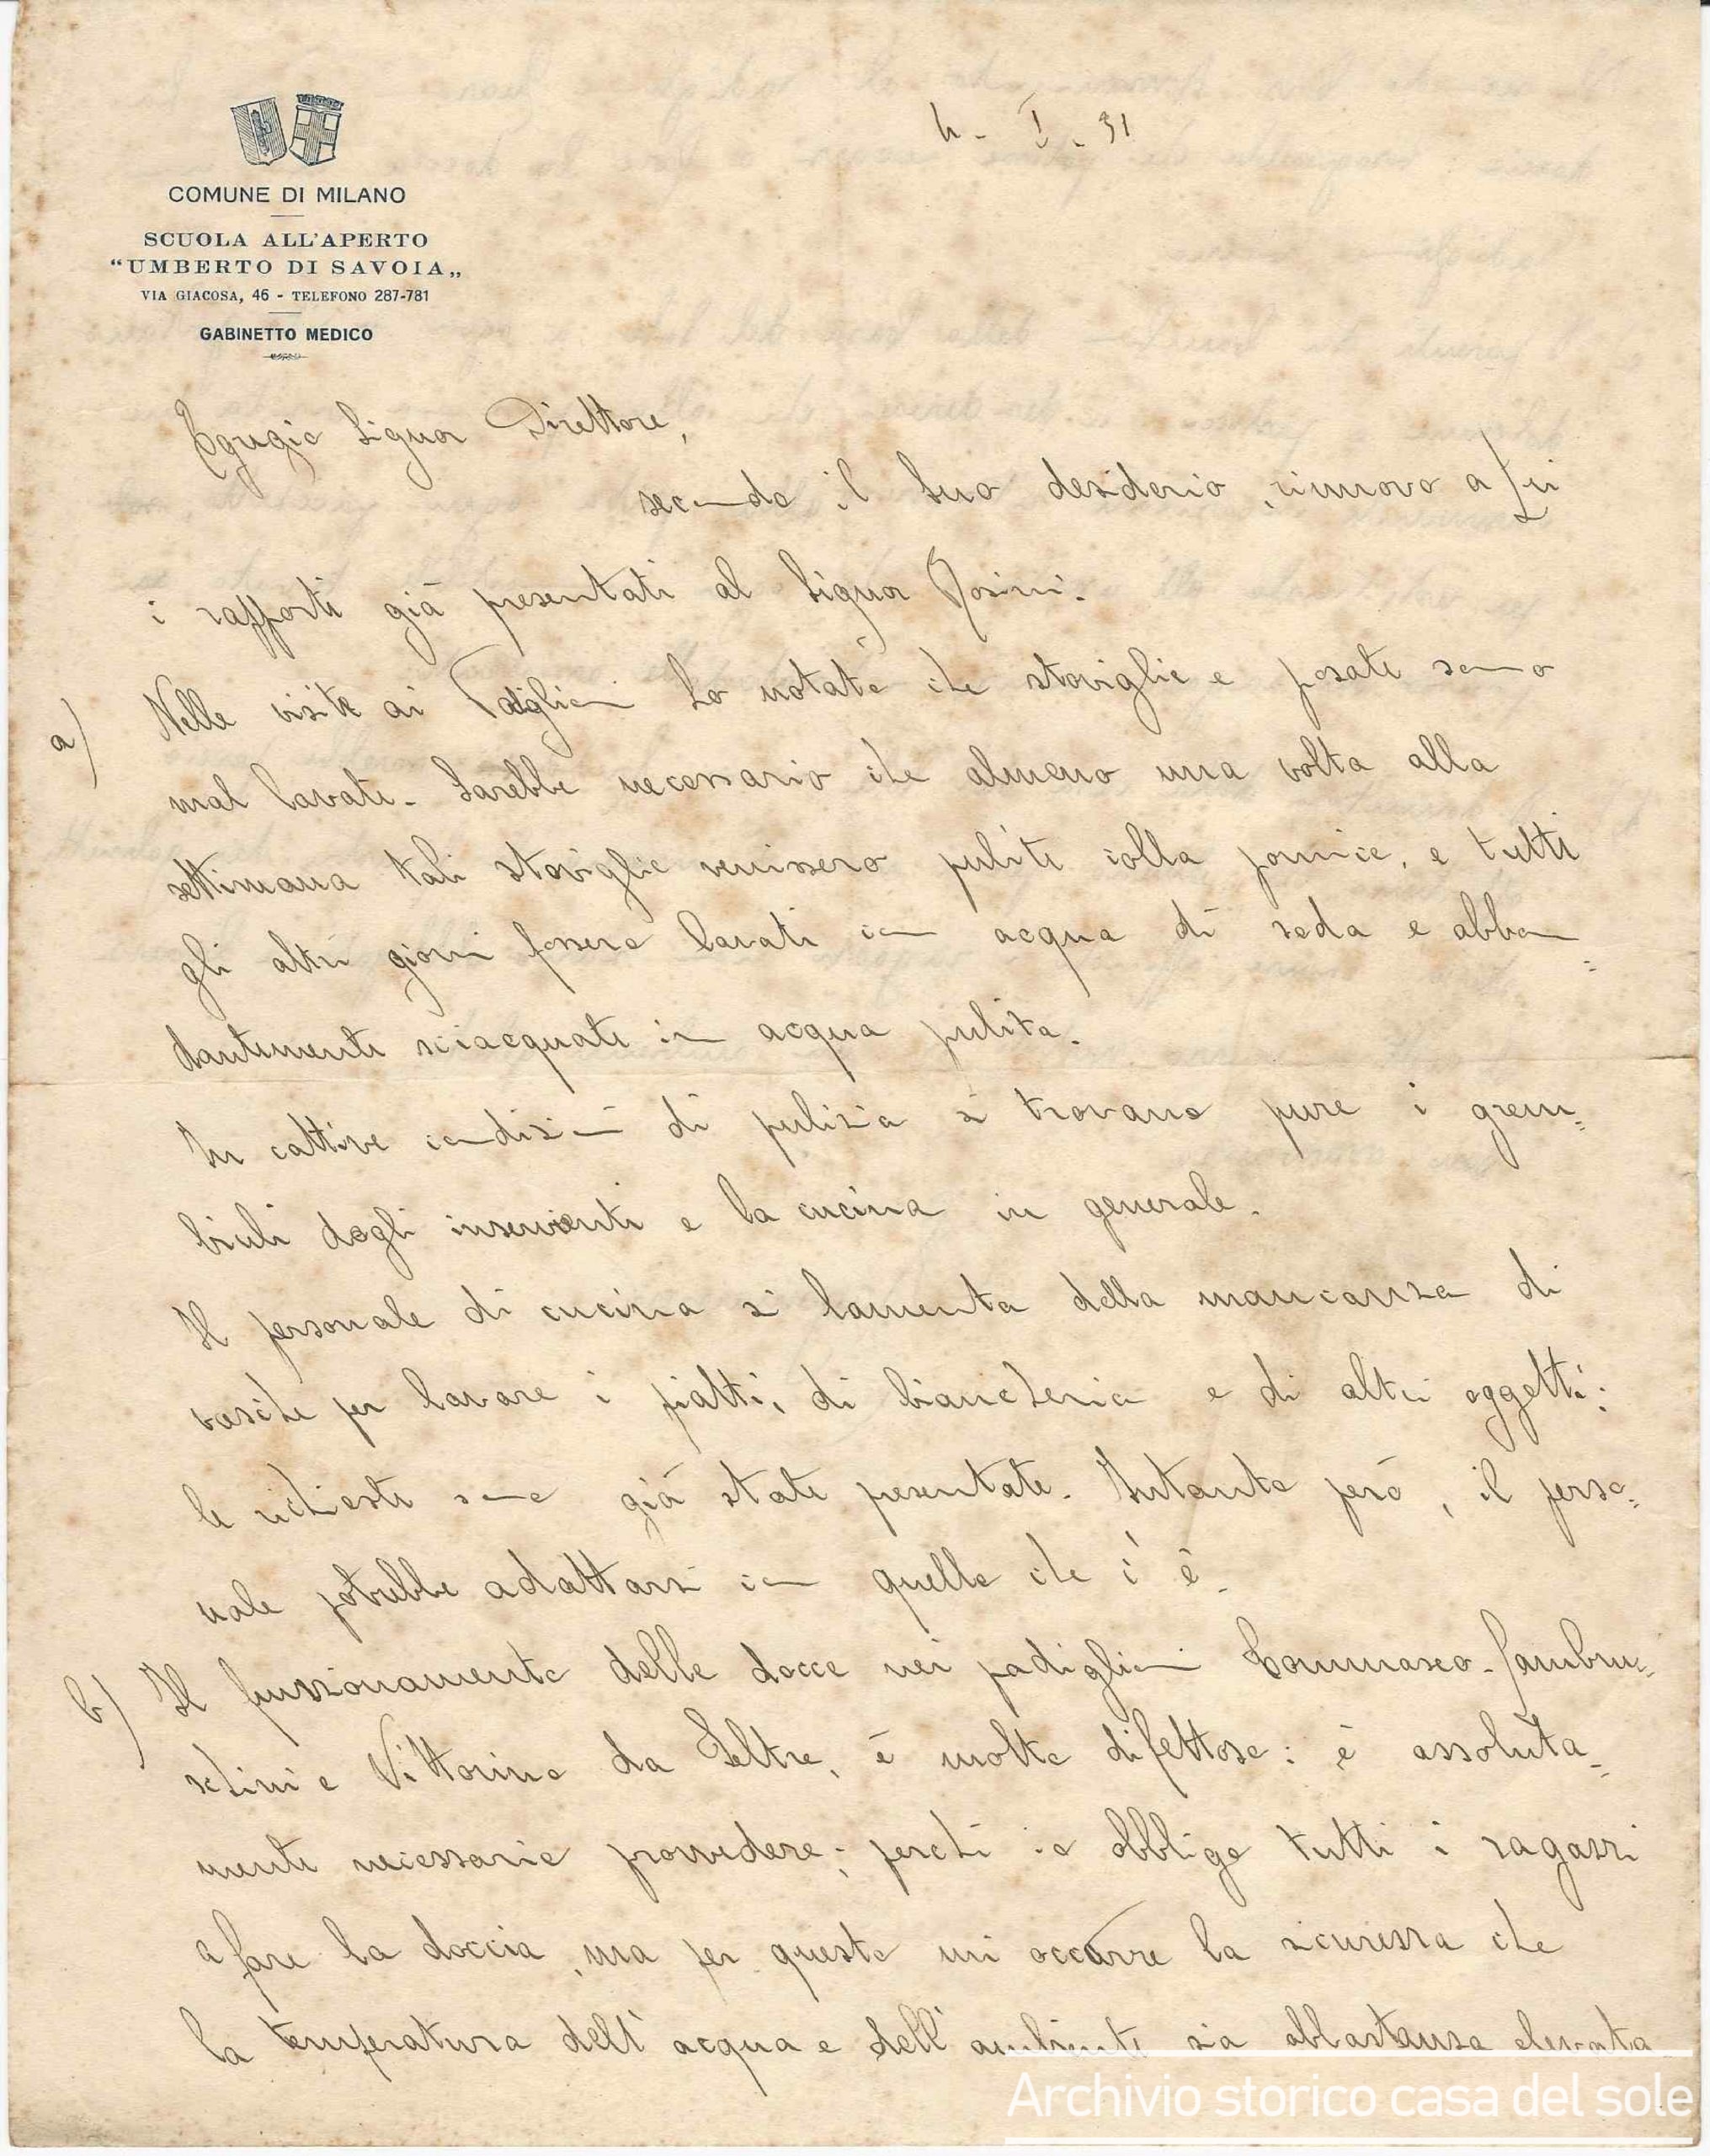 COMUNE DI MILANO
SCUOLA ALL'APERTO
“UMBERTO DI SAVOIA„
VIA GIACOSA, 46 - TELEFONO 287-781
GABINETTO MEDICO
4 - I - 31
Egregio Signor Direttore,
secondo il Suo desiderio, rinnovo a Lei
i rapporti già presentati al Signor Rosini.
a) Nelle visite ai Padiglioni ho notato che stoviglie e posate sono
mal lavate. Sarebbe necessario che almeno una volta alla
settimana tali stoviglie venissero pulite colla pomice, e tutti
gli altri giorni fossero lavati con acqua di soda e abbon=
dantemente sciacquate in acqua pulita.
In cattive condizioni di pulizia si trovano pure i grem=
biuli degli inservienti e la cucina in generale.
Il personale di cucina si lamenta della mancanza di
vasche per lavare i piatti, di biancheria e di altri oggetti:
le richieste sono già state presentate. Intanto però, il perso=
nale potrebbe adattarsi con quello che c'è.
b) Il funzionamento delle docce nei padiglioni Tommaseo - Lambru=
schini e Vittorino da Feltre, è molto difettoso: è assoluta=
mente necessario provvedere; perchè io obbligo tutti i ragazzi
a fare la doccia, ma per questo mi occorre la sicurezza che
la temperatura dell'acqua e dell'ambiente sia abbastanza elevata
Archivio storico casa del sole